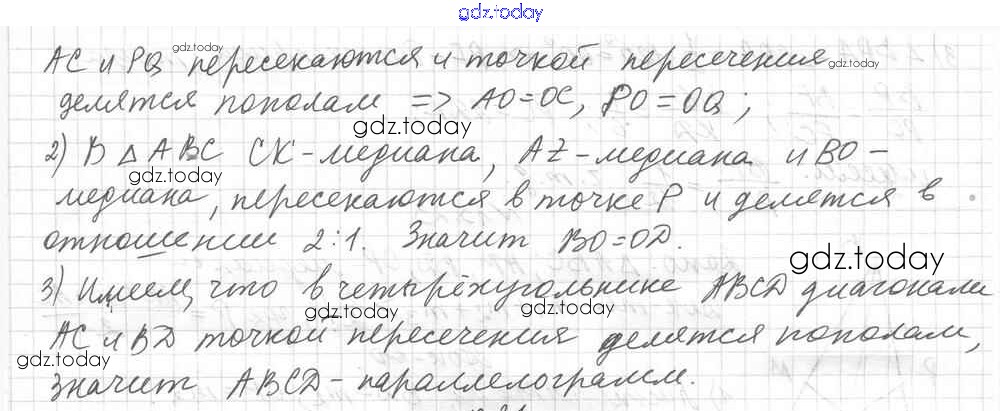 gdz.today
AC и PQ пересекаются и точкой пересечения
делятся пополам => AO=OC, PO=OQ;
2) В △ ABC CK-медиана, AZ-медиана и BO-
медиана, пересекаются в точке P и делятся в
отношении 2:1. Значит BO=OD.
3) Имеем, что в четырёхугольнике ABCD диагонали
AC и BD точкой пересечения делятся пополам,
значит ABCD-параллелограмм.
gdz.today
gdz.today
gdz.today
gdz.today
gdz.today
gdz.today
gdz.today
gdz.today
gdz.today